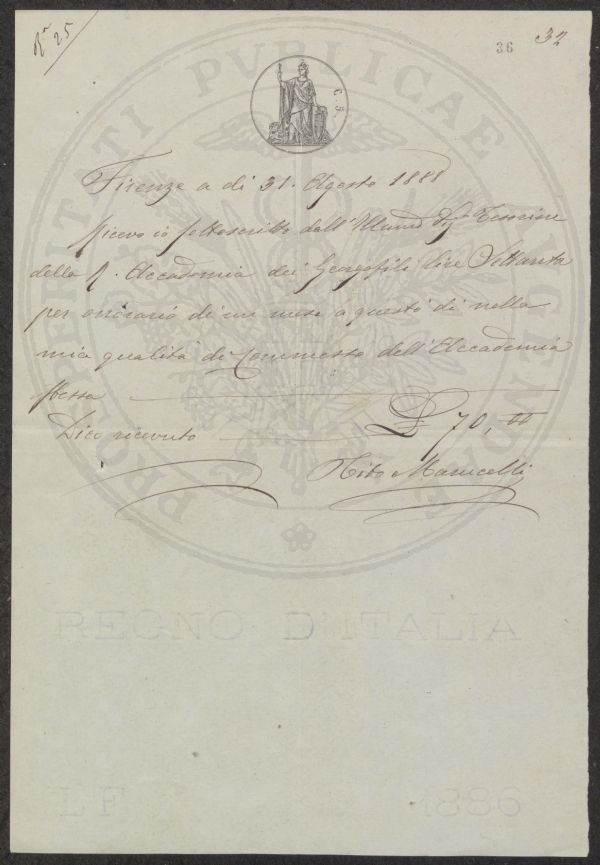 N° 25
36
32
C. 5.
PROSPERITATI PVBLICAE AVGENDAE
Firenze a dì 31. Agosto 1888
Ricevo io sottoscritto dall'Illmo Sigr Tesoriere
della R. Accademia dei Georgofili Lire Settanta
per onorario di un mese a questo dì nella
mia qualità di Commesso dell'Accademia
stessa
Dico ricevuto £ 70,00
Tito Marucelli
REGNO D'ITALIA
LF 1886